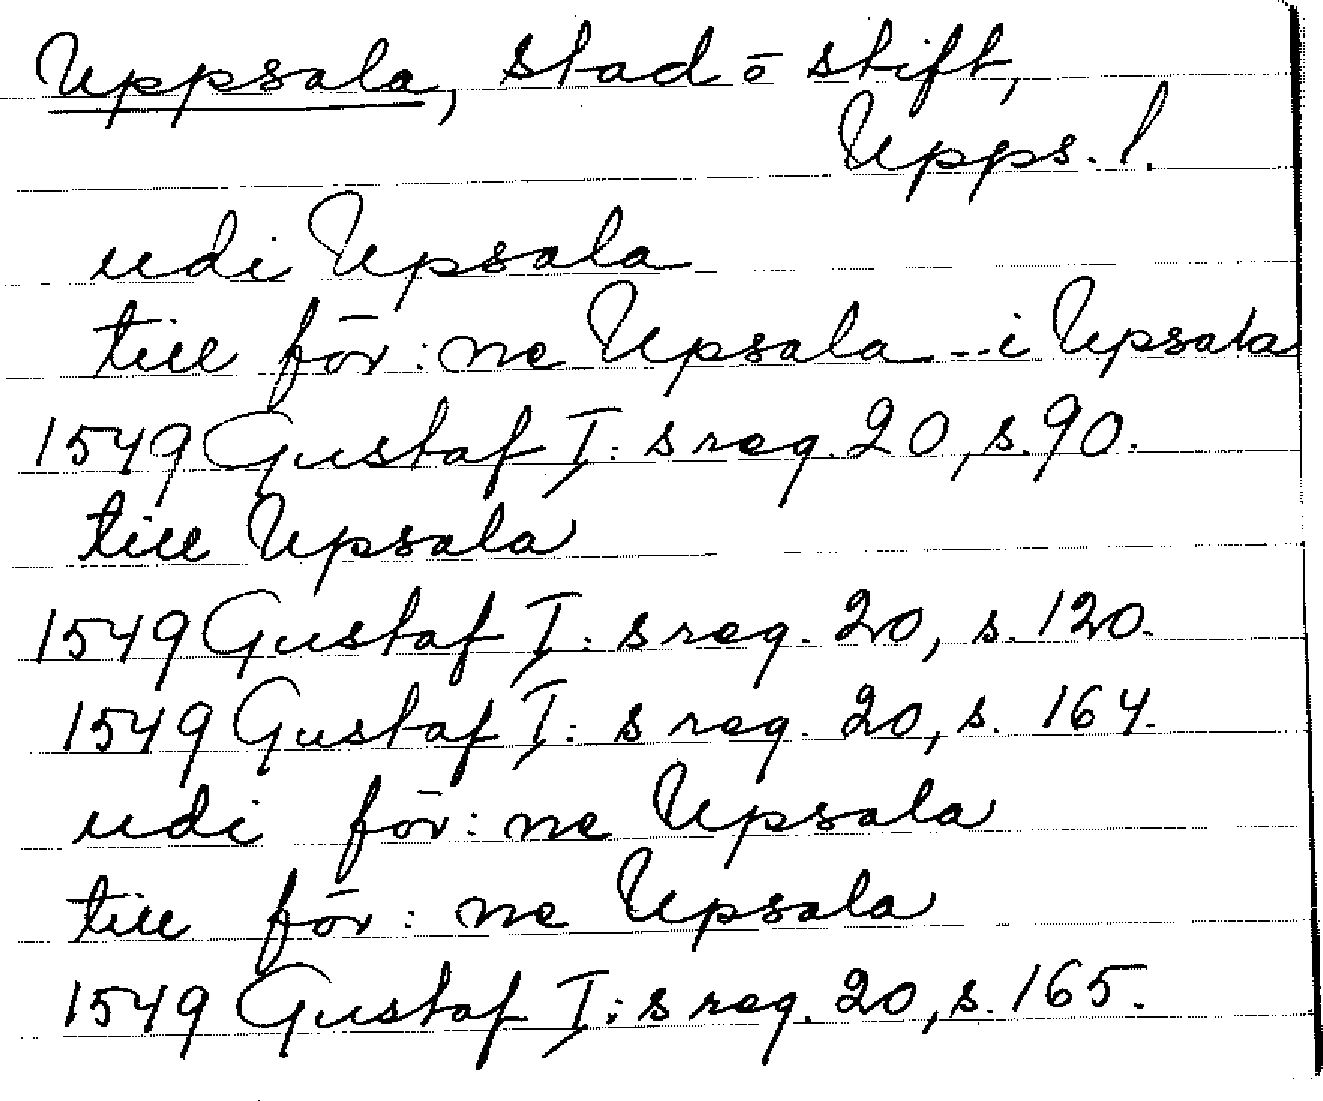 Uppsala, stad o stift,
Upps. l.
udi Upsala
till för: ne Upsala - - i Upsala
1549 Gustaf I: s reg. 20, s. 90.
till Upsala
1549 Gustaf I: s reg. 20, s. 120.
1549 Gustaf I: s reg. 20, s. 164.
udi för: ne Upsala
till för: ne Upsala
1549 Gustaf I: s reg. 20, s. 165.